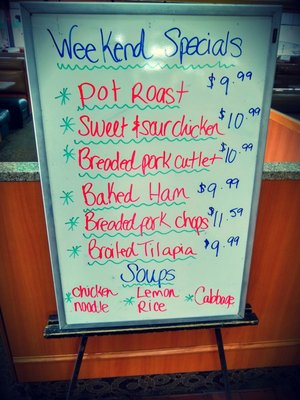 Weekend Specials
* Pot Roast $9.99
* Sweet & sour chicken $10.99
* Breaded pork cutlet $10.99
* Baked Ham $9.99
* Breaded pork chops $11.59
* Broiled Tilapia $9.99
Soups
* chicken noodle * Lemon Rice * Cabbage